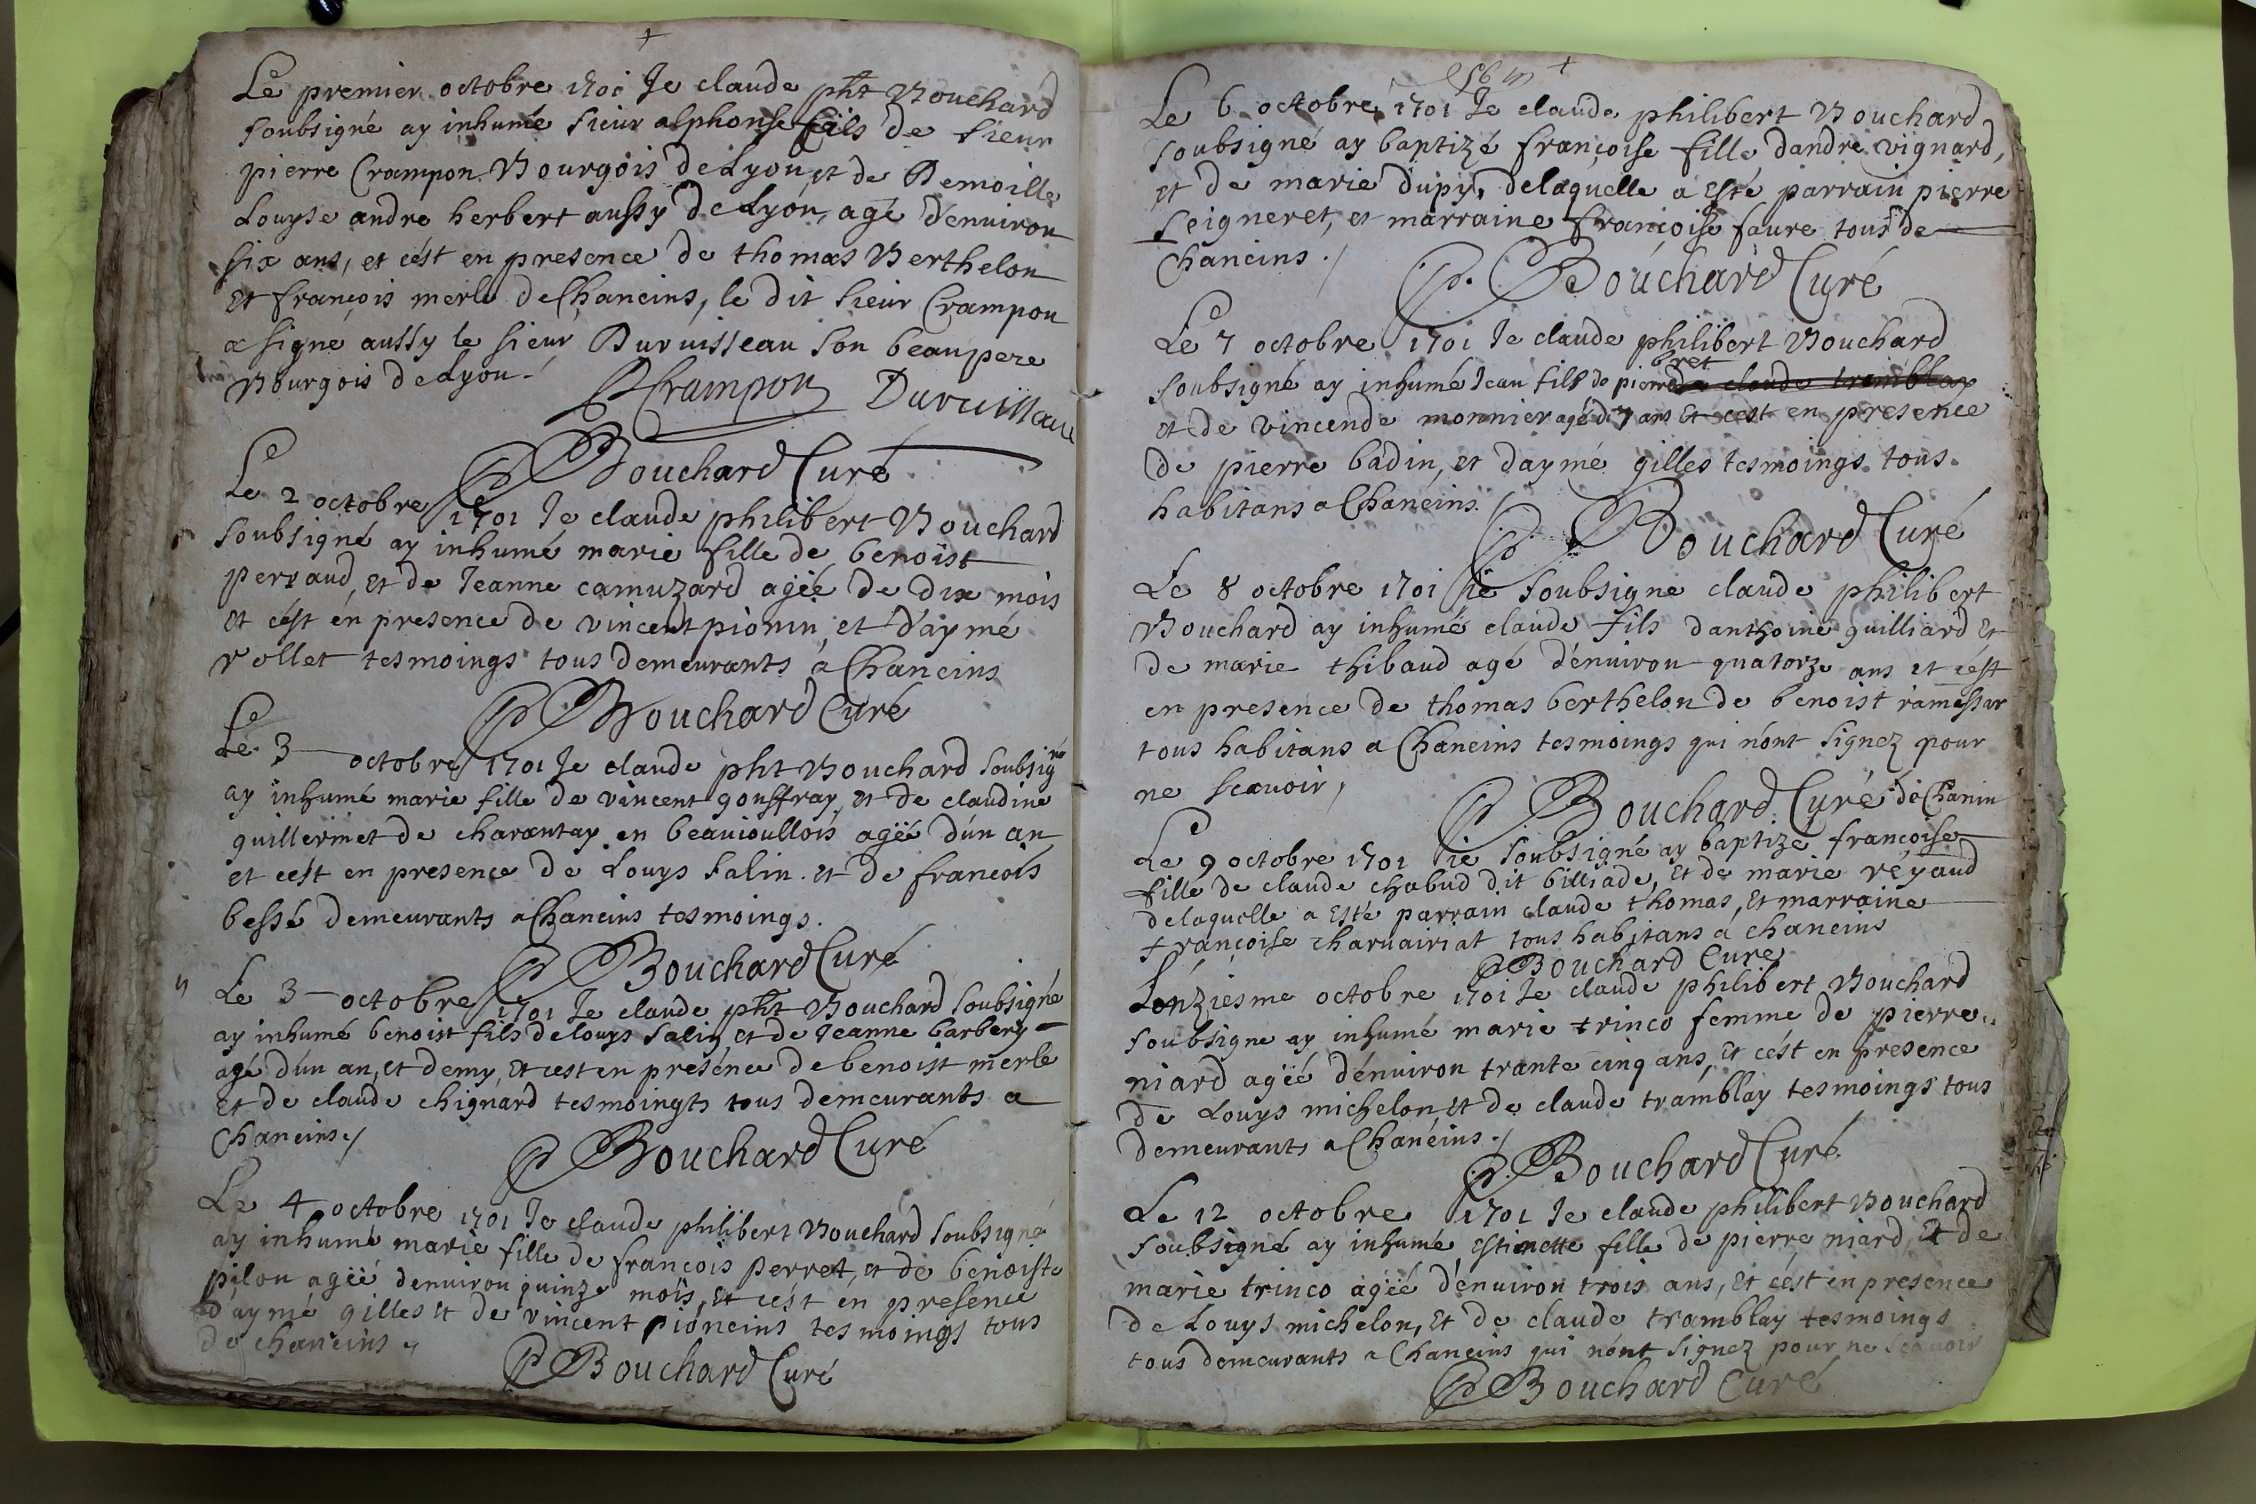 Le premier octobre 1701 Je claude pht Bouchard
soubsigné ay inhumé sieur alphonse fils de sieur
pierre Crampon Bourgois de Lyon et de Demoille
Louyse andre herbert aussy de Lyon, agé d'enuiron
six ans, et cést en presence de thomas Berthelon
Et françois merle de Chaneins, le dit sieur Crampon
a signé aussy le sieur Duruisseau son beaupere
Bourgois de Lyon
Crampon Duruisseau
Bouchard Curé
Le 2 octobre 1701 Je claude philibert Bouchard
soubsigné ay inhumé marie fille de benoist
perraud, et de Jeanne camuzard agéé de dix mois
et cést én presence de vincent pionin, et d'aymé
rollet tesmoings tous demeurants à Chaneins
Bouchard Curé
Le 3 octobre 1701 Je claude pht Bouchard soubsigné
ay inhumé marie fille de vincent gouffray, et de claudine
guillermet de charantay en beauioullois agéé d'ún an
et cést en presence de Louys salin et de francois
bessé demeurants a Chaneins tesmoings.
Bouchard Curé
Le 3 octobre 1701 Je claude pht Bouchard soubsigné
ay inhumé benoist fils de louys salin et de Jeanne barbery
agé d'ún an, et demy, et cest en présénce de benoist merle
et de claude chignard tesmoingts tous demeurants a
Chaneins
Bouchard Curé
Le 4 octobre 1701 Je claude philibert Bouchard soubsigné
ay inhumé marie fille de francois perret, et de benoiste
pilon agéé denuiron quinze mois, et cést en presence
d'aymé gilles et de vincent pioneins tesmoings tous
de chaneins
Bouchard Curé
Le 6 octobre 1701 Je claude philibert Bouchard
soubsigné ay baptizé françoise fille dandré vignard,
et de marie dupy, delaquelle a esté parrain pierre
seigneret, et marraine françoise faure tous de
Chaneins
Bouchard Curé
Le 7 octobre 1701 Je claude philibert Bouchard
bret
soubsigné ay inhumé Jean fils de pierre claude tramblay
et de vincende monnier agé d 7 ans Et cést en presence
de pierre badin, et daymé gilles tesmoings tous
habitans a Chaneins
Bouchard Curé
Le 8 octobre 1701 je soubsigne claude philibert
Bouchard ay inhumé claude fils danthoine guilliard et
de marie thibaud agé d'enuiron quatorze ans et cést
en presence de thomas berthelon de benoist
tous habitans a Chaneins tesmoings qui n'ont signez pour
ne scauoir,
Bouchard Curé de Chanin
Le 9 octobre 1701 je soubsigné ay baptizé francoise
fille de claude chabud dit billiade, et de marie réyaud
delaquelle a esté parrain claude thomas, et marraine
françoise charuairiat tous habitans a chaneins
Bouchard Curé
Lonziesme octobre 1701 Je claude philibert Bouchard
soubsigne ay inhumé marie trinco femme de pierre
niard agéé d'énuiron trante cinq ans, et cést en presence
de Louys michelon, et de claude tramblay tesmoings tous
demeurants a Chanéins
Bouchard Curé
Le 12 octobre 1701 Je claude philibert Bouchard
soubsigné ay inhumé estinette fille de pierre niard, et de
marie trinco agéé d'énuiron trois ans, et cést en presence
de Louys michelon, et de claude tramblay tesmoings
tous demeurants a Chaneins qui n'ont signez pour ne scauoir
Bouchard Curé